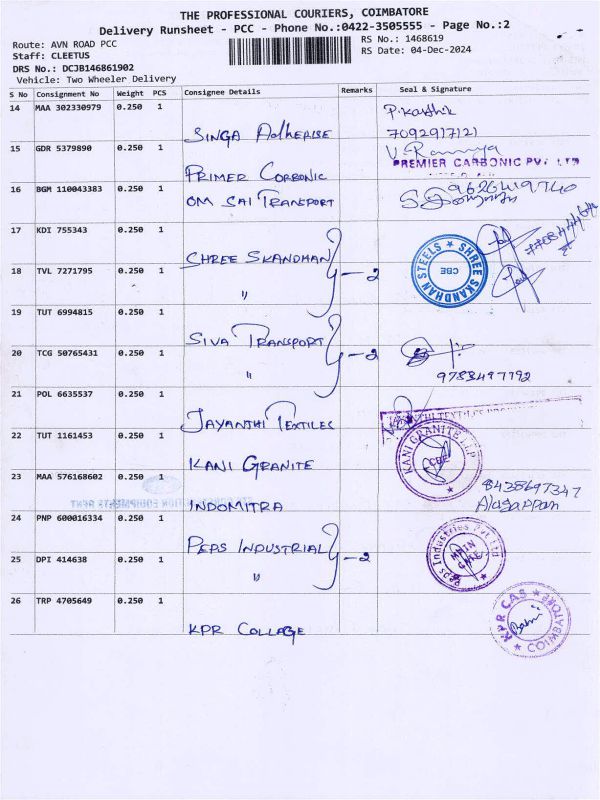 THE PROFESSIONAL COURIERS, COIMBATORE
Delivery Runsheet - PCC - Phone No.:0422-3505555 - Page No.:2
Route: AVN ROAD PCC
RS No.: 1468619
Staff: CLEETUS
RS Date: 04-Dec-2024
DRS No.: DCJB146861902
Vehicle: Two Wheeler Delivery
S No Consignment No Weight PCS Consignee Details Remarks Seal & Signature
14 MAA 302330979 0.250 1 P. Karthik
SINGA Adherise 7092917121
15 GDR 5379890 0.250 1 V. Ramya
PREMIER CARBONIC PVT LTD
PRIMER CORBONIC
16 BGM 110043383 0.250 1 9626419740
OM SAI TRANSPORT
17 KDI 755343 0.250 1
SHREE SKANDHAN
SHREE SKANDHAN STEELS CBE
18 TVL 7271795 0.250 1 - 2
"
19 TUT 6994815 0.250 1
SIVA TRANSPORT
20 TCG 50765431 0.250 1 - 2
" 9783497792
21 POL 6635537 0.250 1
JAYANTHI TEXTILES
22 TUT 1161453 0.250 1 KANI GRANITE LLP CBE
KANI GRANITE
23 MAA 576168602 0.250 1 8438697347
INDOMITRA Alagappan
24 PNP 600016334 0.250 1
PEPS INDUSTRIAL
Peps Industries Pvt Ltd MAIN GATE
25 DPI 414638 0.250 1 - 2
"
26 TRP 4705649 0.250 1 KPR CAS COIMBATORE
KPR COLLAGE